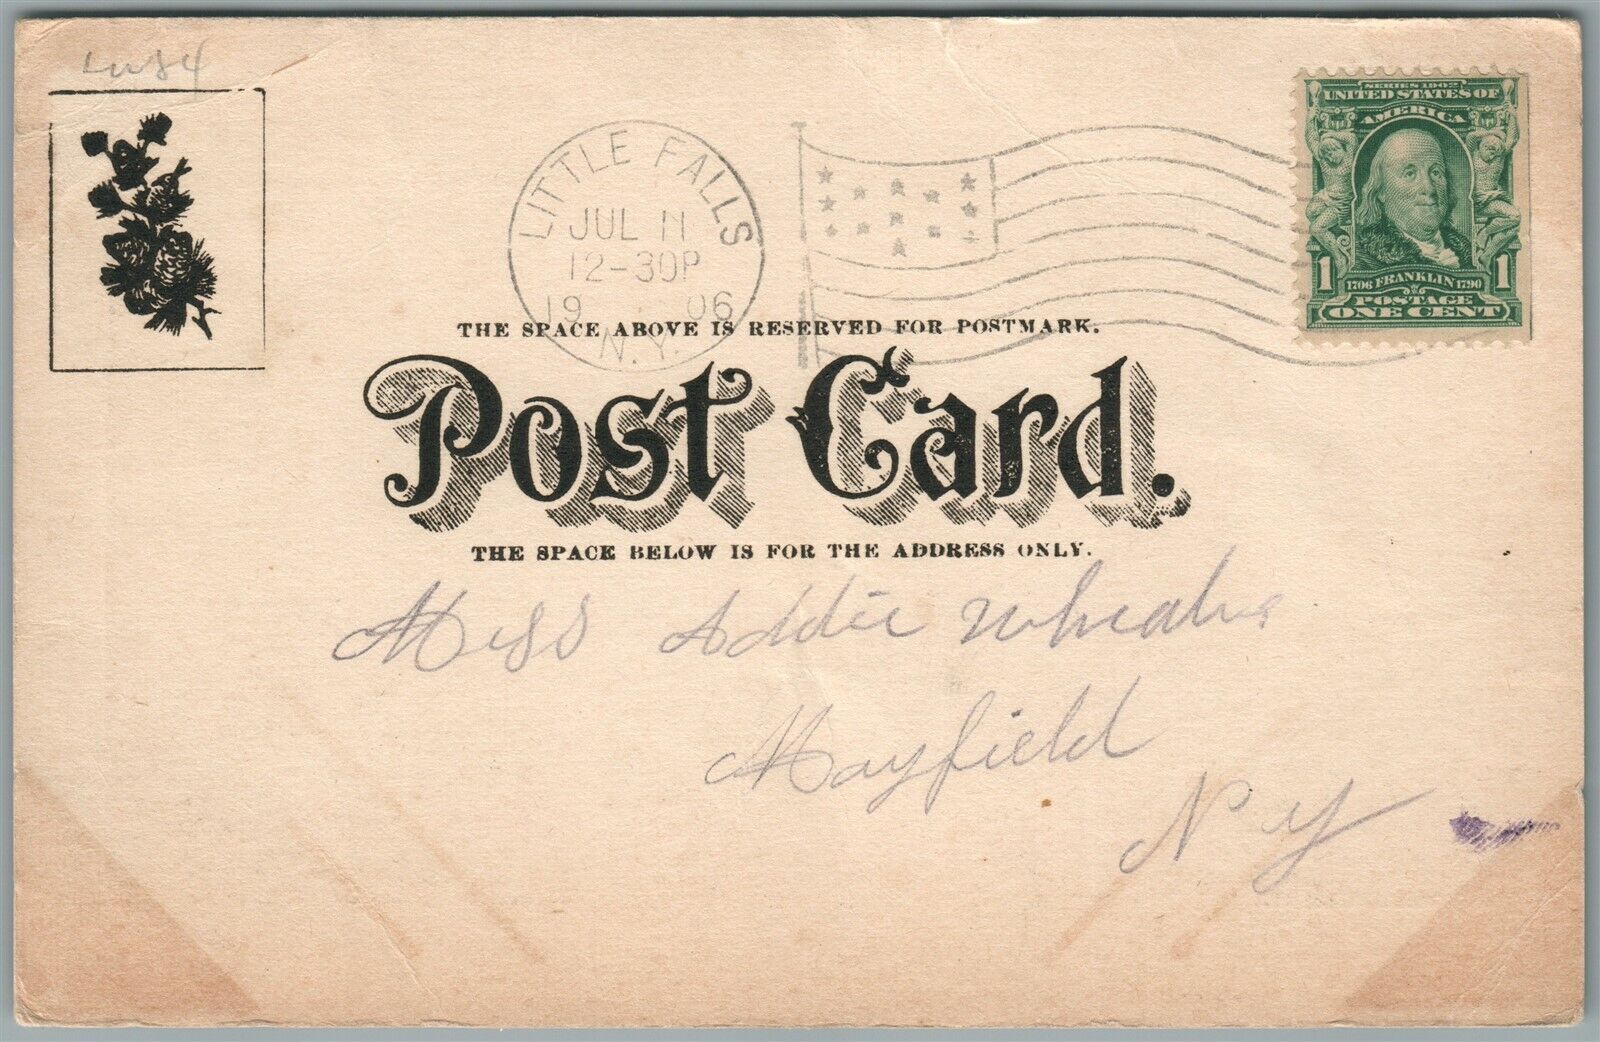 LITTLE FALLS
JUL 11
12-30P
19 06
N.Y.
SERIES 1902
UNITED STATES OF
AMERICA
1 1706 FRANKLIN 1790 1
POSTAGE
ONE CENT
THE SPACE ABOVE IS RESERVED FOR POSTMARK.
Post Card.
THE SPACE BELOW IS FOR THE ADDRESS ONLY.
Miss Addie
Mayfield
N Y